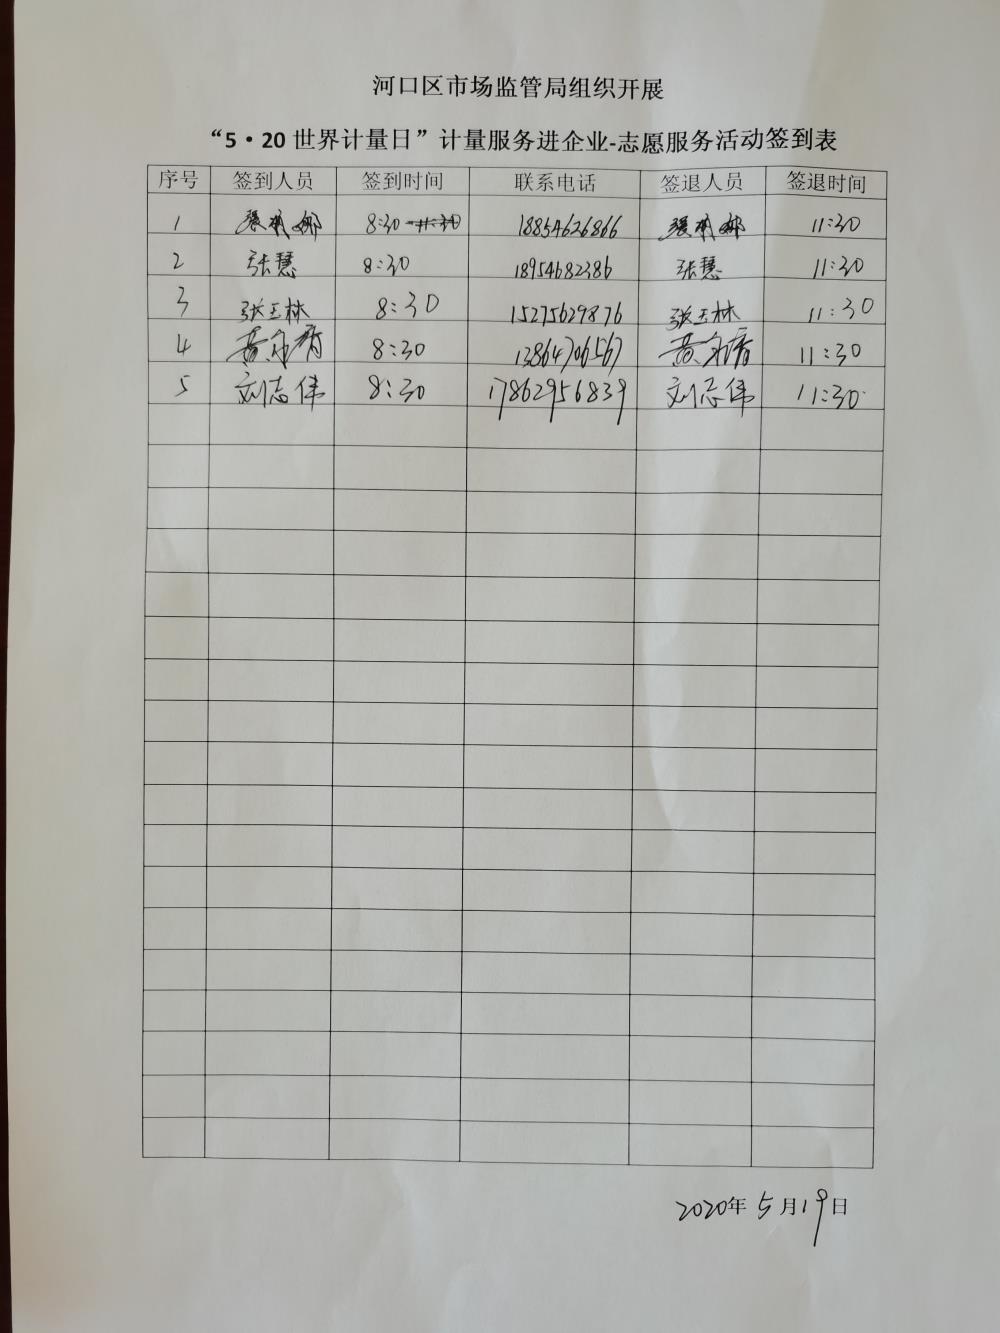 河口区市场监管局组织开展
“5·20世界计量日”计量服务进企业-志愿服务活动签到表
序号 签到人员 签到时间 联系电话 签退人员 签退时间
1 8:30 18854626866 11:30
2 张慧 8:30 18954682386 张慧 11:30
3 张玉林 8:30 15275629876 张玉林 11:30
4 8:30 13864706567 11:30
5 刘志伟 8:30 17862956839 刘志伟 11:30
2020年5月19日